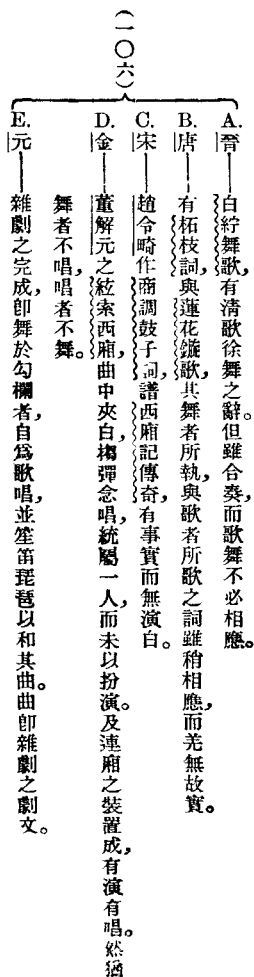 (一〇六)
A.晉——白紵舞歌,有清歌徐舞之辭。但雖合奏,而歌舞不必相應。
B.唐——有柘枝詞,與蓮花鏇歌,其舞者所執,與歌者所歌之詞雖稍相應,而羌無故實。
C.宋——趙令畸作商調鼓子詞,譜西廂記傳奇,有事實而無演白。
D.金——董解元之絃索西廂,曲中夾白,搊彈念唱,統屬一人,而未以扮演。及連廂之裝置成,有演有唱。然猶
舞者不唱,唱者不舞。
E.元——雜劇之完成,卽舞於勾欄者,自爲歌唱,並笙笛琵琶以和其曲。曲卽雜劇之劇文。